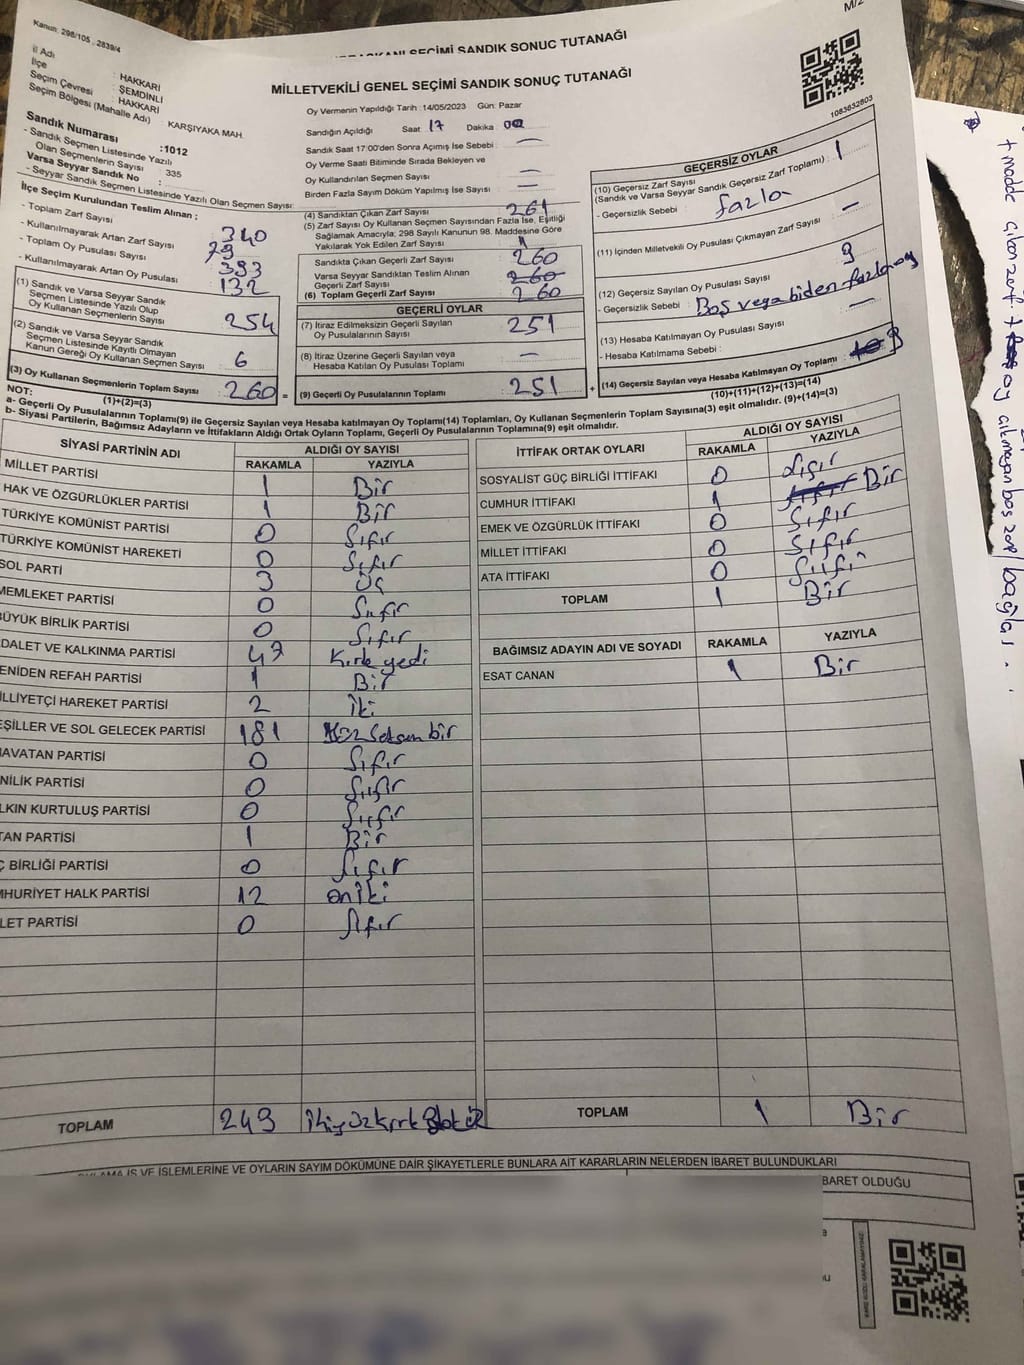 Kanun: 298/105, 2839/4
SEÇİMİ SANDIK SONUÇ TUTANAĞI
MİLLETVEKİLİ GENEL SEÇİMİ SANDIK SONUÇ TUTANAĞI
İl Adı : HAKKARİ
İlçe : ŞEMDİNLİ
Seçim Çevresi : HAKKARİ
Seçim Bölgesi (Mahalle Adı) : KARŞIYAKA MAH.
Sandık Numarası : 1012
- Sandık Seçmen Listesinde Yazılı
Olan Seçmenlerin Sayısı : 335
Varsa Seyyar Sandık No :
- Seyyar Sandık Seçmen Listesinde Yazılı Olan Seçmen Sayısı:
İlçe Seçim Kurulundan Teslim Alınan ;
- Toplam Zarf Sayısı 340
- Kullanılmayarak Artan Zarf Sayısı 79
- Toplam Oy Pusulası Sayısı 393
- Kullanılmayarak Artan Oy Pusulası 132
(1) Sandık ve Varsa Seyyar Sandık
Seçmen Listesinde Yazılı Olup
Oy Kullanan Seçmenlerin Sayısı 254
(2) Sandık ve Varsa Seyyar Sandık
Seçmen Listesinde Kayıtlı Olmayan
Kanun Gereği Oy Kullanan Seçmen Sayısı 6
(3) Oy Kullanan Seçmenlerin Toplam Sayısı 260 =
(1)+(2)=(3)
Oy Vermenin Yapıldığı Tarih : 14/05/2023 Gün: Pazar
Sandığın Açıldığı Saat 17 Dakika 00
Sandık Saat 17:00'den Sonra Açımış İse Sebebi : —
Oy Verme Saati Bitiminde Sırada Bekleyen ve
Oy Kullandırılan Seçmen Sayısı : —
Birden Fazla Sayım Döküm Yapılmış İse Sayısı : —
(4) Sandıktan Çıkan Zarf Sayısı 261
(5) Zarf Sayısı Oy Kullanan Seçmen Sayısından Fazla İse, Eşitliği
Sağlamak Amacıyla; 298 Sayılı Kanunun 98. Maddesine Göre
Yakılarak Yok Edilen Zarf Sayısı : 1
Sandıkta Çıkan Geçerli Zarf Sayısı 260
Varsa Seyyar Sandıktan Teslim Alınan
Geçerli Zarf Sayısı 260
(6) Toplam Geçerli Zarf Sayısı 260
GEÇERLİ OYLAR
(7) İtiraz Edilmeksizin Geçerli Sayılan
Oy Pusulalarının Sayısı 251
(8) İtiraz Üzerine Geçerli Sayılan veya
Hesaba Katılan Oy Pusulası Toplamı : —
(9) Geçerli Oy Pusulalarının Toplamı : 251 +
M/2
1083632803
GEÇERSİZ OYLAR
(10) Geçersiz Zarf Sayısı
(Sandık ve Varsa Seyyar Sandık Geçersiz Zarf Toplamı) : 1
- Geçersizlik Sebebi : fazla
(11) İçinden Milletvekili Oy Pusulası Çıkmayan Zarf Sayısı : —
(12) Geçersiz Sayılan Oy Pusulası Sayısı : 9
- Geçersizlik Sebebi : Boş veya birden fazla oy
(13) Hesaba Katılmayan Oy Pusulası Sayısı : —
- Hesaba Katılmama Sebebi :
(14) Geçersiz Sayılan veya Hesaba Katılmayan Oy Toplamı 9
(10)+(11)+(12)+(13)=(14)
NOT:
a- Geçerli Oy Pusulalarının Toplamı(9) ile Geçersiz Sayılan veya Hesaba katılmayan Oy Toplamı(14) Toplamları, Oy Kullanan Seçmenlerin Toplam Sayısına(3) eşit olmalıdır. (9)+(14)=(3)
b- Siyasi Partilerin, Bağımsız Adayların ve İttifakların Aldığı Ortak Oyların Toplamı, Geçerli Oy Pusulalarının Toplamına(9) eşit olmalıdır.
SİYASİ PARTİNİN ADI ALDIĞI OY SAYISI
RAKAMLA YAZIYLA
MİLLET PARTİSİ 1 Bir
HAK VE ÖZGÜRLÜKLER PARTİSİ 1 Bir
TÜRKİYE KOMÜNİST PARTİSİ 0 Sıfır
TÜRKİYE KOMÜNİST HAREKETİ 0 Sıfır
SOL PARTİ 3 Üç
MEMLEKET PARTİSİ 0 Sıfır
BÜYÜK BİRLİK PARTİSİ 0 Sıfır
DALET VE KALKINMA PARTİSİ 47 Kırk yedi
ENİDEN REFAH PARTİSİ 1 Bir
İLLİYETÇİ HAREKET PARTİSİ 2 İki
EŞİLLER VE SOL GELECEK PARTİSİ 181 Yüz Seksen bir
NAVATAN PARTİSİ 0 Sıfır
NİLİK PARTİSİ 0 Sıfır
LKIN KURTULUŞ PARTİSİ 0 Sıfır
TAN PARTİSİ 1 Bir
Ç BİRLİĞİ PARTİSİ 0 Sıfır
MHURİYET HALK PARTİSİ 12 oniki
LET PARTİSİ 0 Sıfır
TOPLAM 249
İTTİFAK ORTAK OYLARI ALDIĞI OY SAYISI
RAKAMLA YAZIYLA
SOSYALİST GÜÇ BİRLİĞİ İTTİFAKI 0 Sıfır
CUMHUR İTTİFAKI 1 Bir
EMEK VE ÖZGÜRLÜK İTTİFAKI 0 Sıfır
MİLLET İTTİFAKI 0 Sıfır
ATA İTTİFAKI 0 Sıfır
TOPLAM 1 Bir
BAĞIMSIZ ADAYIN ADI VE SOYADI RAKAMLA YAZIYLA
ESAT CANAN 1 Bir
TOPLAM 1 Bir
İŞ VE İŞLEMLERİNE VE OYLARIN SAYIM DÖKÜMÜNE DAİR ŞİKAYETLERLE BUNLARA AİT KARARLARIN NELERDEN İBARET BULUNDUKLARI
BARET OLDUĞU